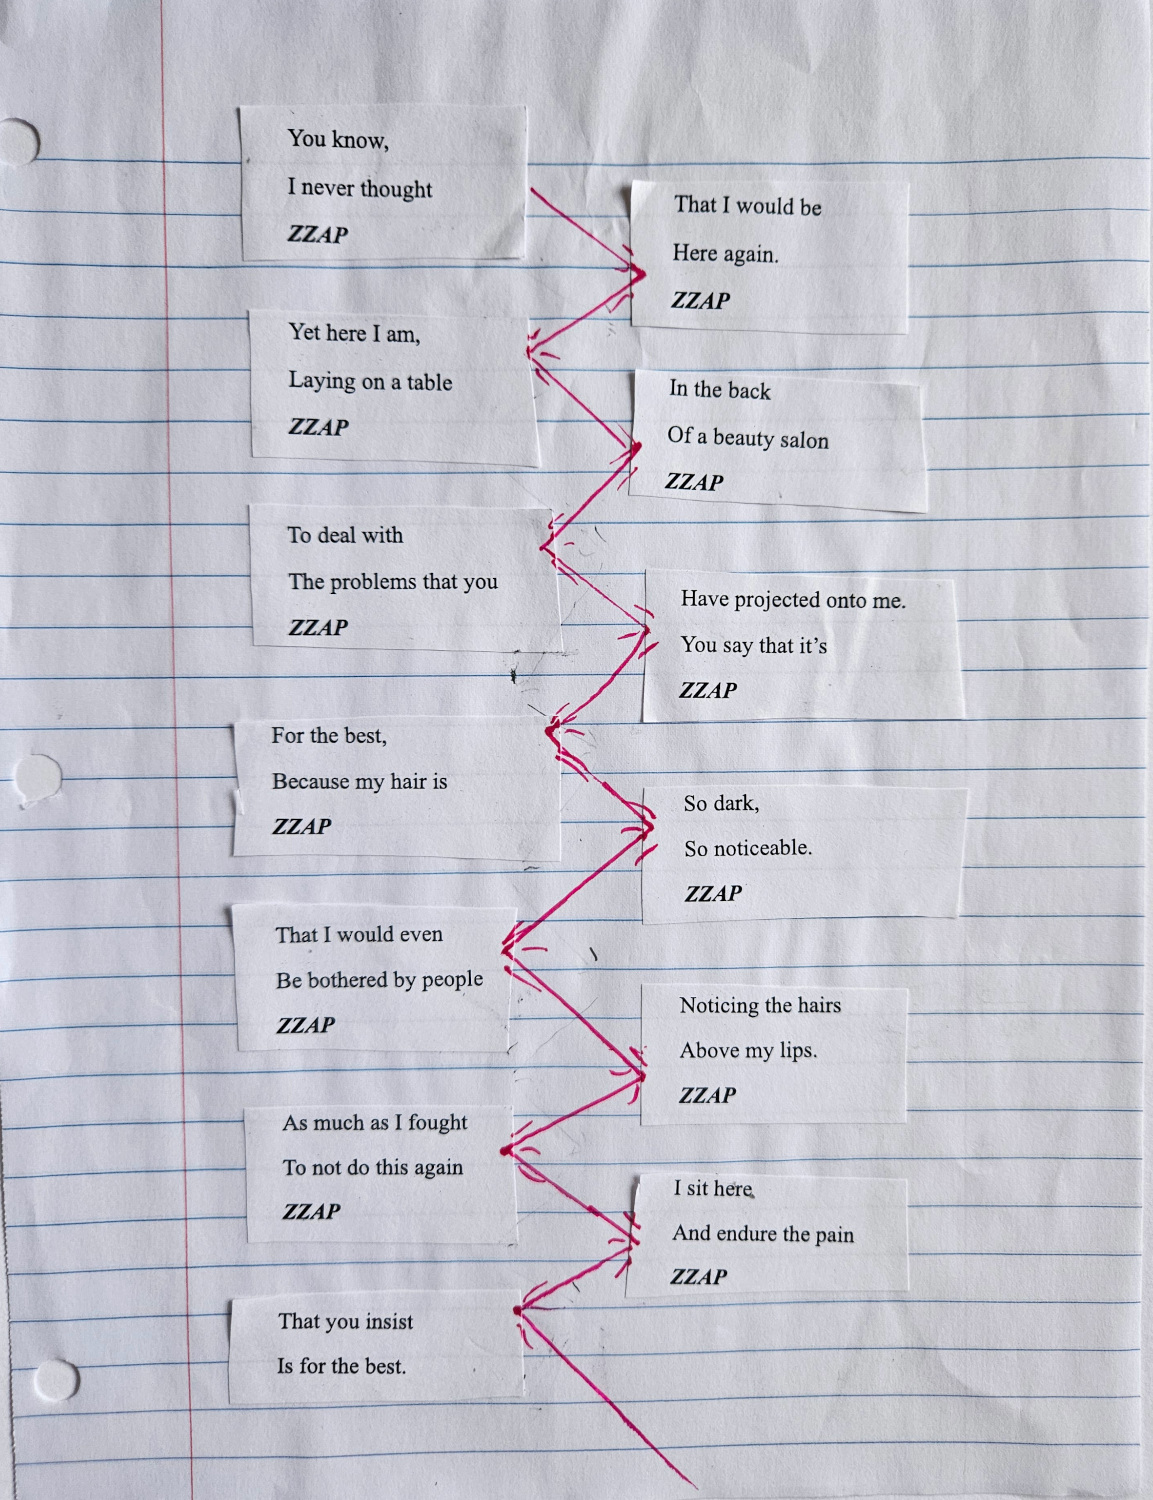 You know,
I never thought
ZZAP
That I would be
Here again.
ZZAP
Yet here I am,
Laying on a table
ZZAP
In the back
Of a beauty salon
ZZAP
To deal with
The problems that you
ZZAP
Have projected onto me.
You say that it’s
ZZAP
For the best,
Because my hair is
ZZAP
So dark,
So noticeable.
ZZAP
That I would even
Be bothered by people
ZZAP
Noticing the hairs
Above my lips.
ZZAP
As much as I fought
To not do this again
ZZAP
I sit here
And endure the pain
ZZAP
That you insist
Is for the best.